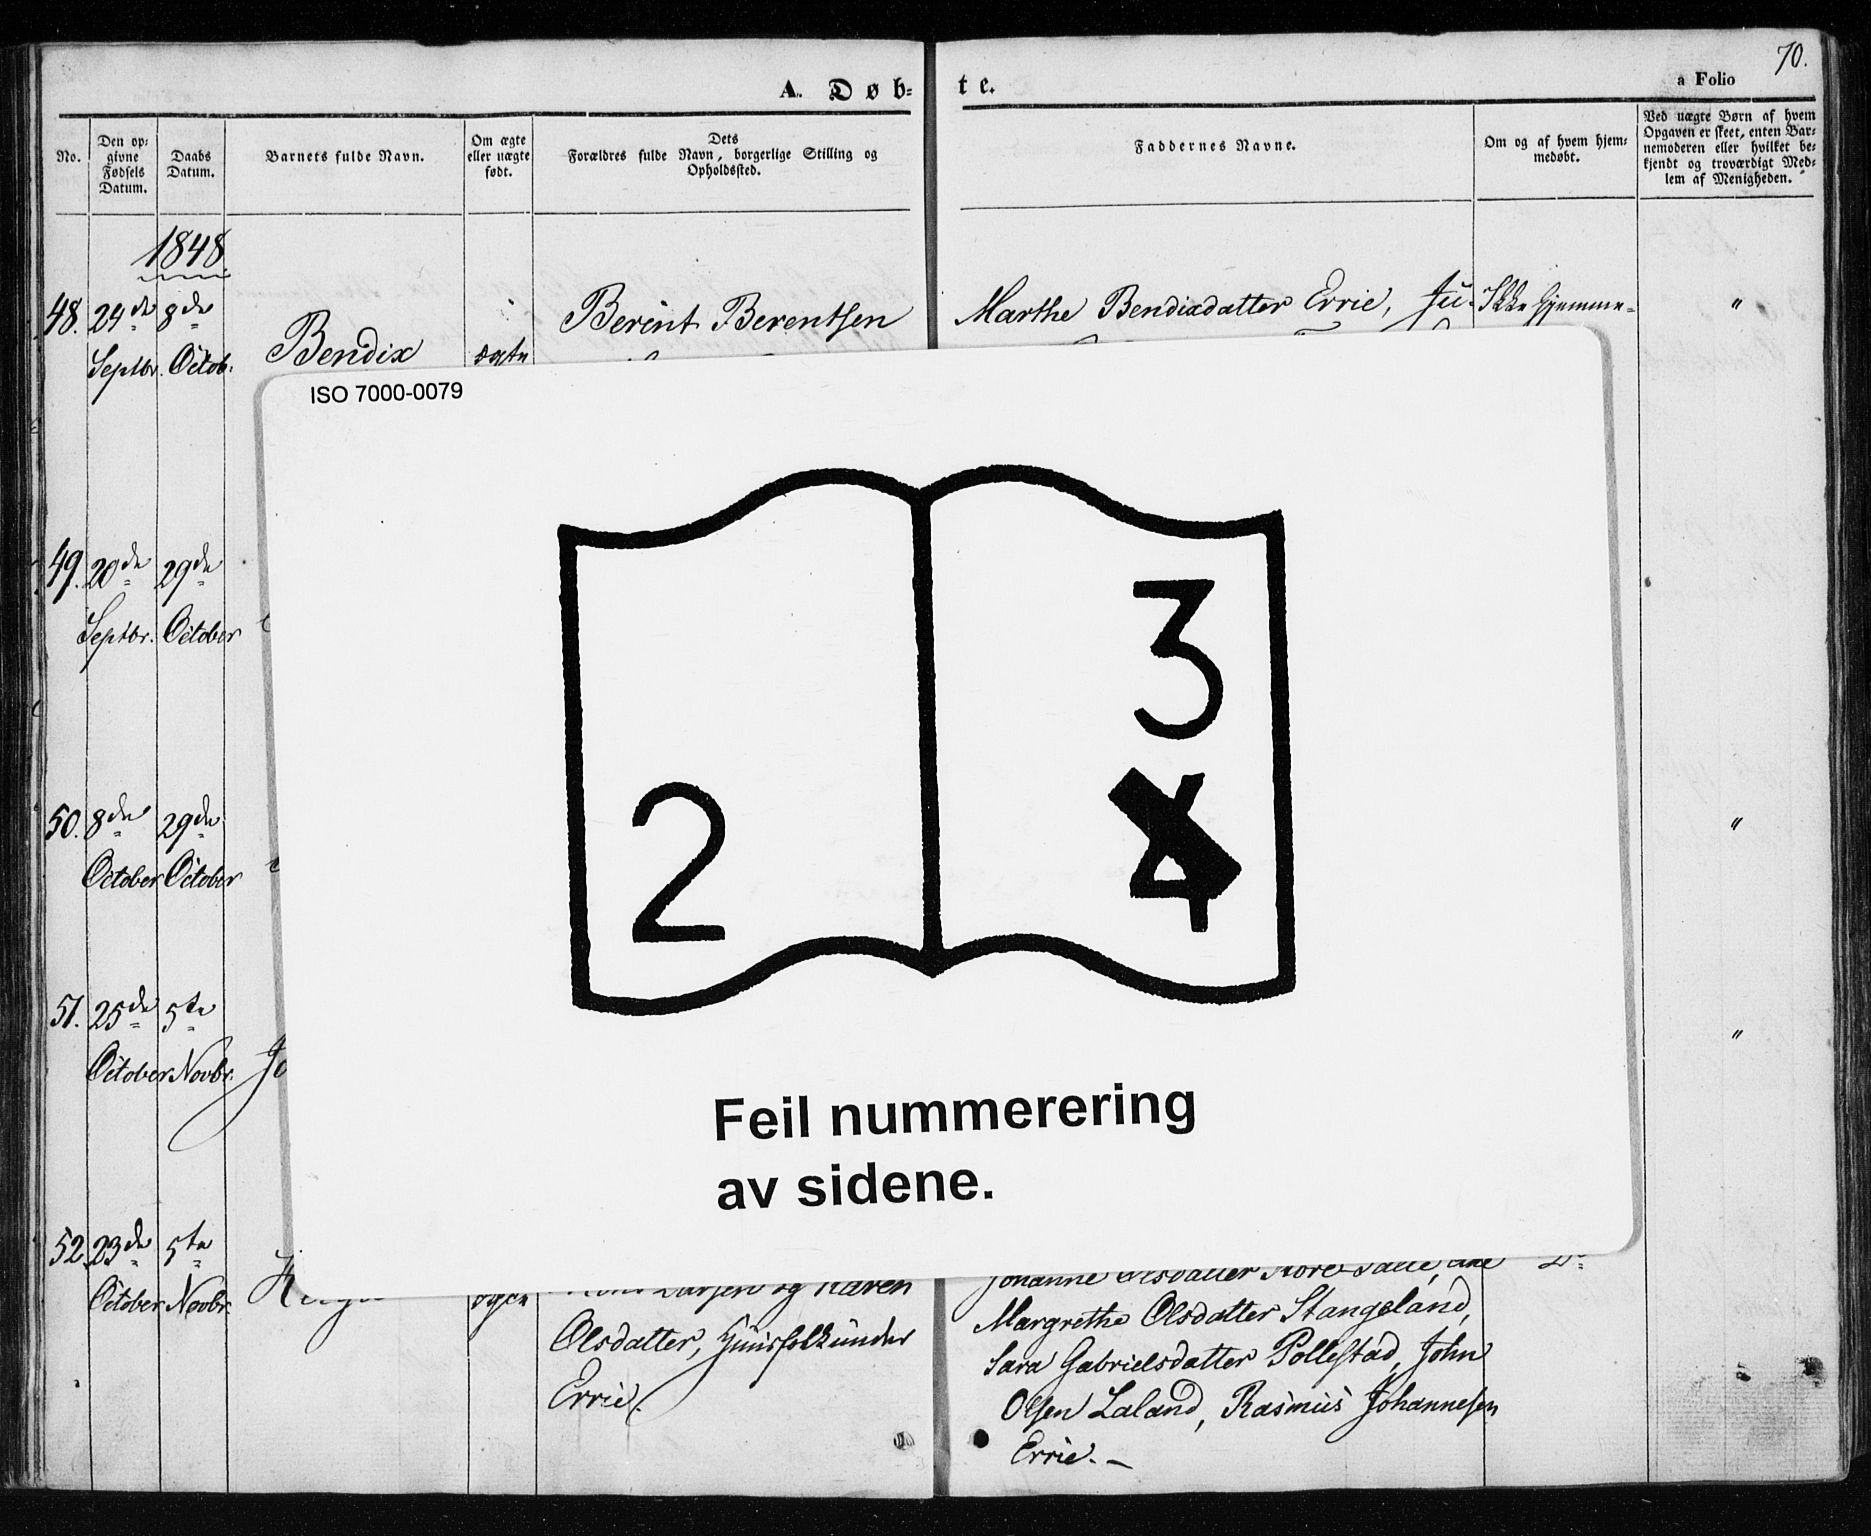 70.
A. Døb-
te.
a Folio
No.
Den op-
givne
Fødsels
Datum.
Daabs
Datum.
Barnets fulde Navn.
Om ægte
eller uægte
født.
Dets
Forældres fulde Navn, borgerlige Stilling og
Opholdssted.
Faddernes Navne.
Om og af hvem hjem-
medøbt.
Ved uægte Børn af hvem
Opgaven er skeet, enten Bar-
nemoderen eller hvilket be-
kjendt og troværdigt Med-
lem af Menigheden.
1848.
48. 24de 8de
Septbr. Octob:
Bendix
ægte
Berent Berentsen
Marthe Bendixdatter Errie,
Ikke hjemme-
"
ISO 7000-0079
49. 20de 29de
Septbr. October
50. 8de 29de
October October
"
51. 25de 5te
October Novbr.
Jo
"
52. 23de 5te
October Novbr.
ægte
Larsen og Karen
Olsdatter, Huusfolk under
Errie.
Johanne Olsdatter
Margrethe Olsdatter Stangeland,
Sara Gabrielsdatter Pollestad, John
Olsen Laland, Rasmus Johannesen
Errie. –
2
3
4
Feil nummerering
av sidene.